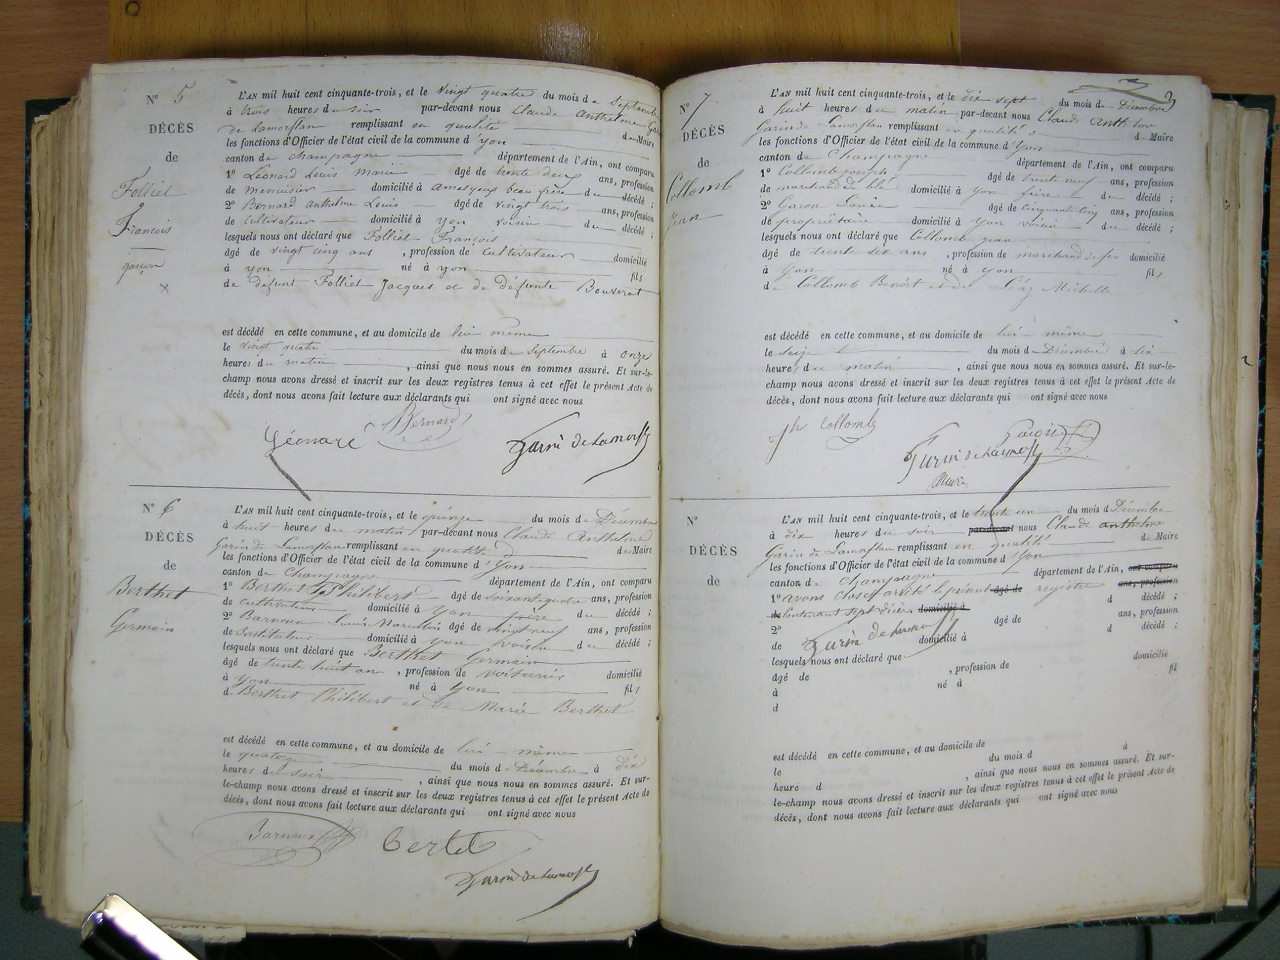 N° 5
DÉCÈS
de
Folliet
François
garçon
L'AN mil huit cent cinquante-trois, et le vingt quatre du mois de Septembre
à trois heures du soir par-devant nous Claude Anthelme Garin
de Lamorflan remplissant en qualité de Maire
les fonctions d'Officier de l'état civil de la commune d'yon
canton de champagne département de l'Ain, ont comparu
1° Léonard Louis Marie âgé de trente deux ans, profession
de menuisier domicilié à ameyzeu beau frère du décédé ;
2° Bernard anthelme Louis âgé de vingt trois ans, profession
de Cultivateur domicilié à yon voisin du décédé ;
lesquels nous ont déclaré que Folliet François
âgé de vingt cinq ans , profession de cultivateur domicilié
à yon né à yon fils
de défunt Folliet Jacques et de défunte Bouvéret
est décédé en cette commune, et au domicile de lui même
le vingt quatre du mois de Septembre à onze
heures du matin , ainsi que nous nous en sommes assuré. Et sur-le-
champ nous avons dressé et inscrit sur les deux registres tenus à cet effet le présent Acte de
décès, dont nous avons fait lecture aux déclarants qui ont signé avec nous
Léonard Bernard Garin de Lamorfl
N° 6
DÉCÈS
de
Berthet
Germain
L'AN mil huit cent cinquante-trois, et le quinze du mois de Décembre
à huit heures du matin par-devant nous Claude Anthelme
Garin de Lamorflan remplissant en qualité d de Maire
les fonctions d'Officier de l'état civil de la commune d'Yon
canton de Champagne département de l'Ain, ont comparu
1° Berthet Philibert âgé de soixante quatre ans, profession
de cultivateur domicilié à Yon père du décédé ;
2° Barnoux Louis Marcelin âgé de vingt neuf ans, profession
de instituteur domicilié à yon voisin du décédé ;
lesquels nous ont déclaré que Berthet Germain
âgé de trente huit an , profession de voiturier domicilié
à Yon né à Yon fils
d Berthet Philibert et de Marie Berthet
est décédé en cette commune, et au domicile de lui même
le quatorze du mois de Décembre à dix
heures du soir , ainsi que nous nous en sommes assuré. Et sur-
le-champ nous avons dressé et inscrit sur les deux registres tenus à cet effet le présent Acte de
décès, dont nous avons fait lecture aux déclarants qui ont signé avec nous
Barnoux Bertet
Garin de Lamorfl
N° 7
DÉCÈS
de
Collomb
jean
L'AN mil huit cent cinquante-trois, et le dix sept du mois de Décembre
à huit heures du matin par-devant nous Claude Anthelme
Garin de Lamorflan remplissant en qualité de Maire
les fonctions d'Officier de l'état civil de la commune d'Yon
canton de Champagne département de l'Ain, ont comparu
1° Collomb joseph âgé de trente neuf ans, profession
de marchand de blé domicilié à yon frère du décédé ;
2° âgé de cinquante cinq ans, profession
de propriétaire domicilié à yon voisin du décédé ;
lesquels nous ont déclaré que Collomb jean
âgé de trente six ans , profession de marchand de fer domicilié
à Yon né à Yon fils
de Collomb Benoit et de Michelle
est décédé en cette commune, et au domicile de lui même
le seize du mois de Décembre à six
heures du matin , ainsi que nous nous en sommes assuré. Et sur-le-
champ nous avons dressé et inscrit sur les deux registres tenus à cet effet le présent Acte de
décès, dont nous avons fait lecture aux déclarants qui ont signé avec nous
jh Collomb
Garin de Lamorfl
Maire
N°
DÉCÈS
de
L'AN mil huit cent cinquante-trois, et le trente un du mois de Décembre
à dix heures du soir par-devant nous Claude anthelme
Garin de Lamorflan remplissant en qualité de Maire
les fonctions d'Officier de l'état civil de la commune d'Yon
canton de champagne département de l'Ain, ont comparu
1° avons clos et arrêté le présent âgé de registre ans, profession
de contenant sept décès domicilié à d décédé ;
2° âgé de ans, profession
de Garin de Lamorfl domicilié à d décédé ;
lesquels nous ont déclaré que
âgé de , profession de domicilié
à né à fil
d
est décédé en cette commune, et au domicile de
le du mois d à
heure d , ainsi que nous nous en sommes assuré. Et sur-
le-champ nous avons dressé et inscrit sur les deux registres tenus à cet effet le présent Acte de
décès, dont nous avons fait lecture aux déclarants qui ont signé avec nous